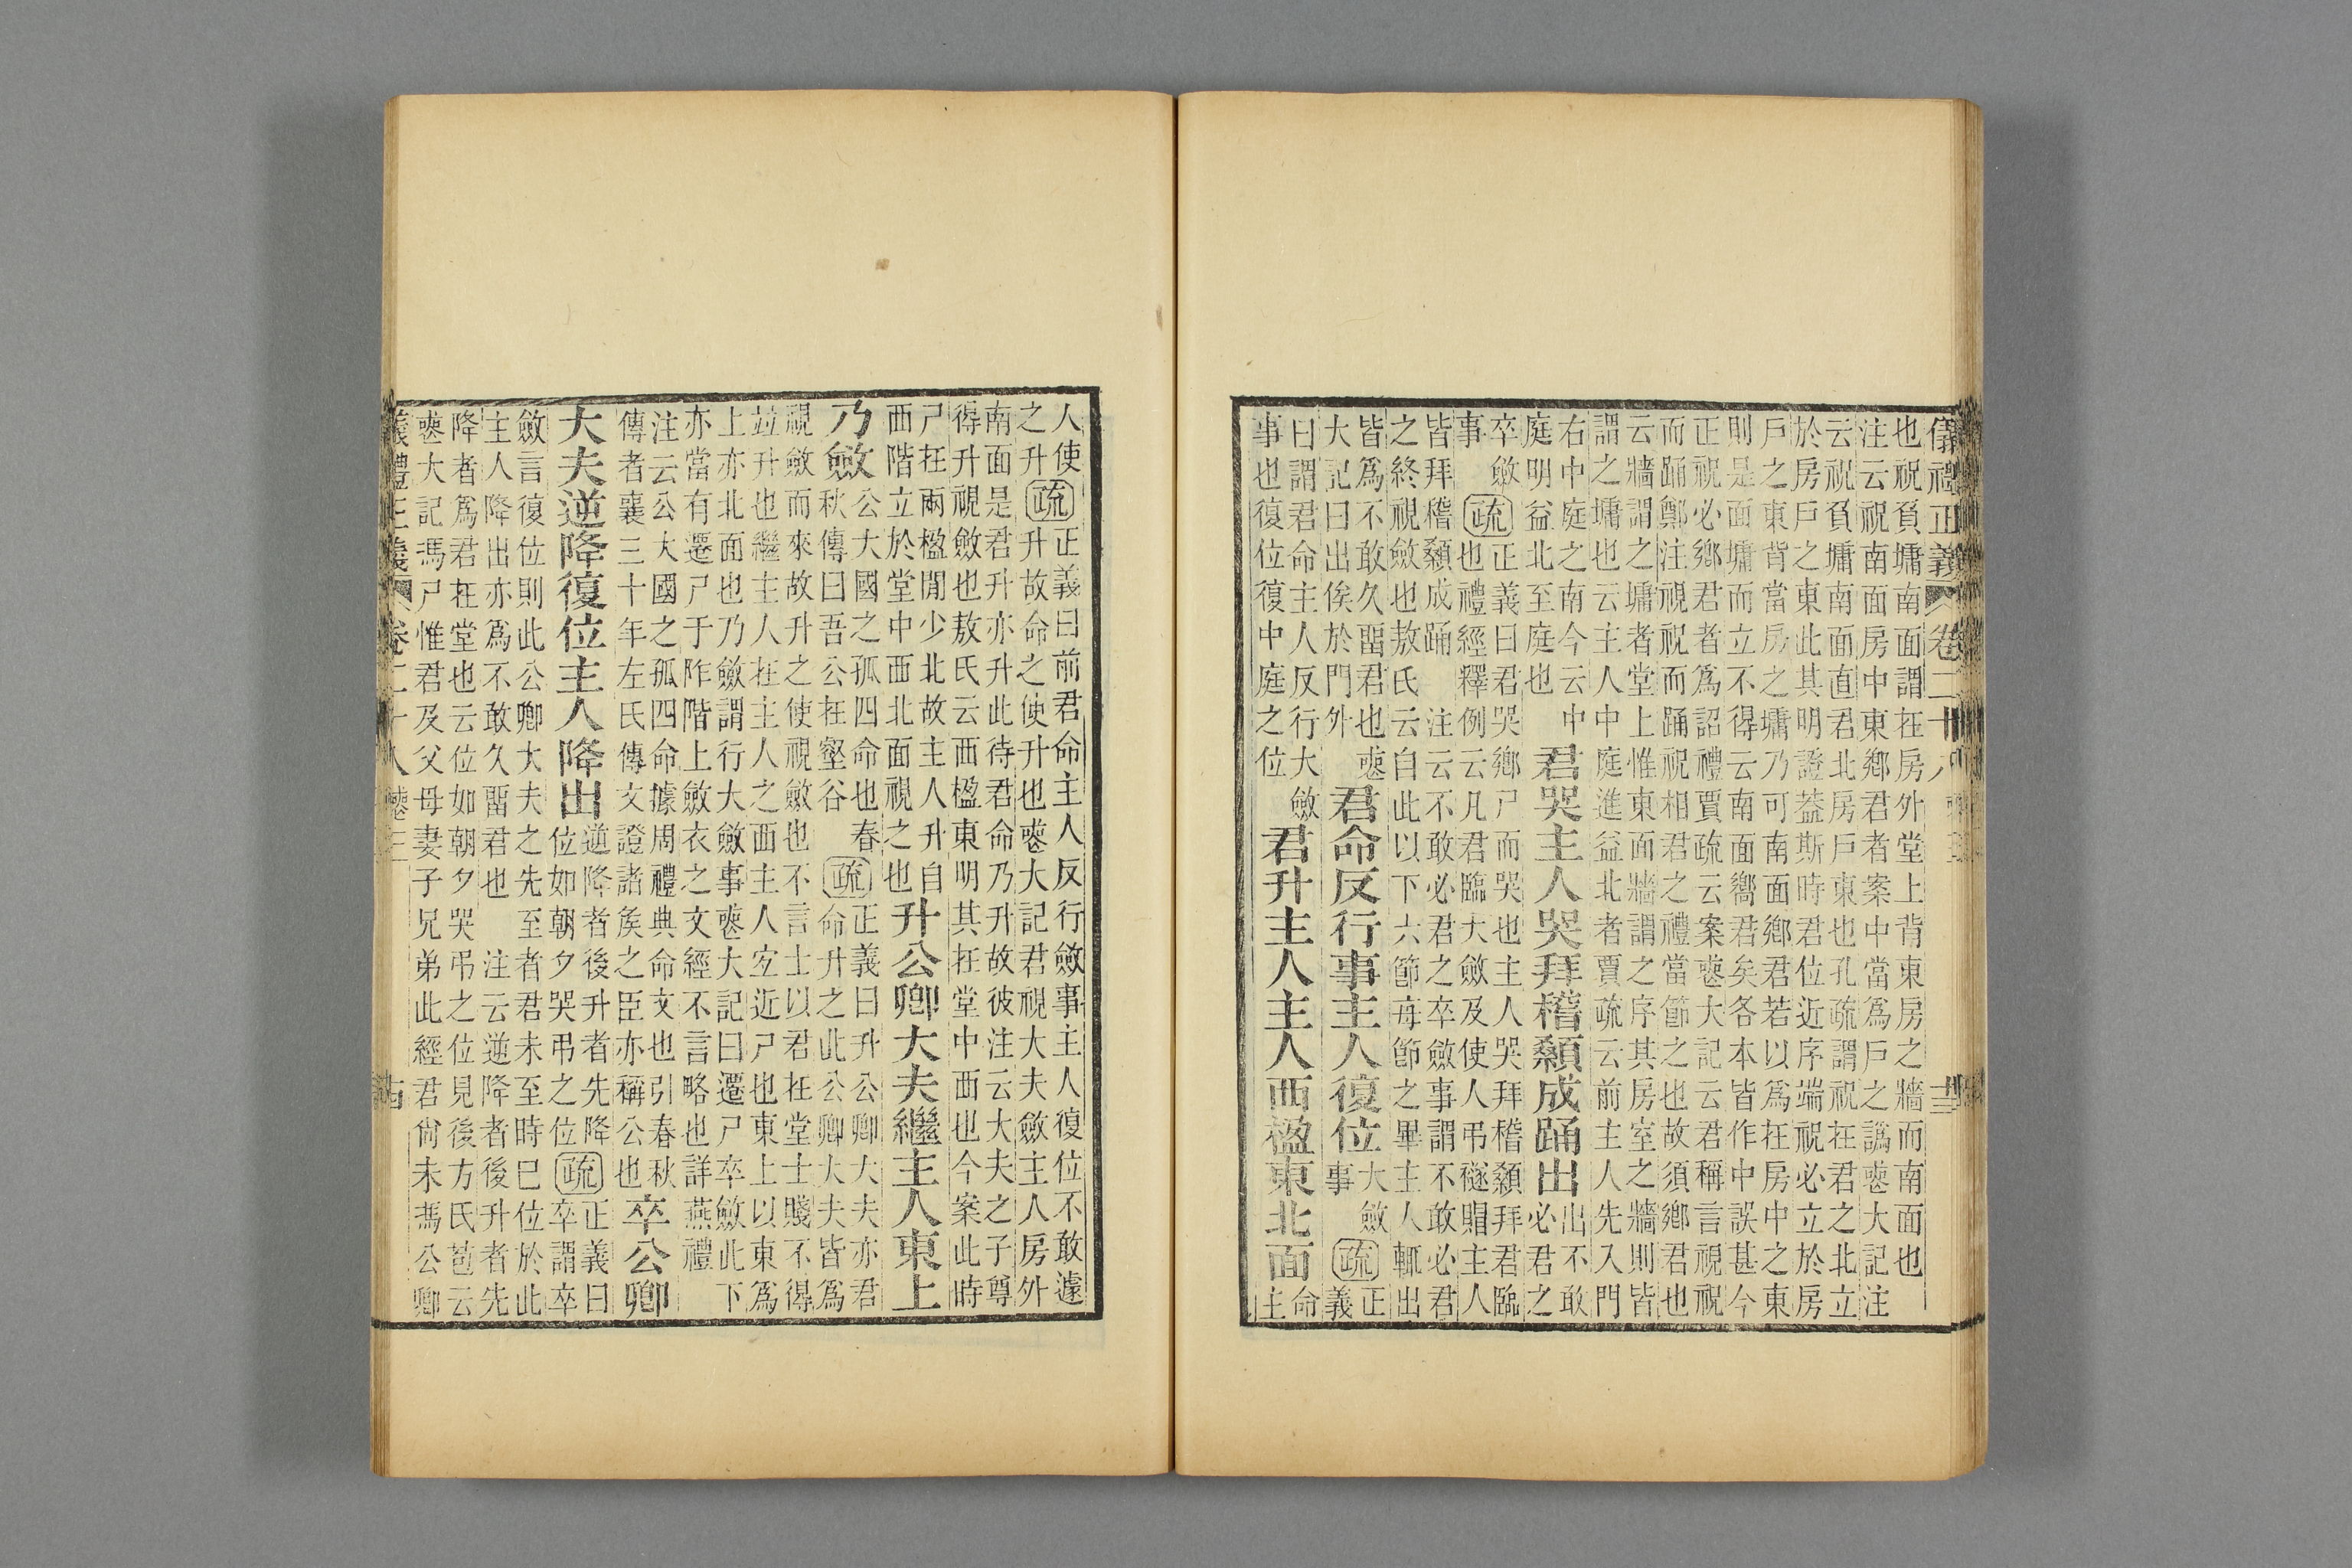 儀禮正義 卷二十八 喪三 十三
也祝負墉南面謂在房外堂上背東房之牆而南面也
注云祝南面房中東鄉君者案中當爲戶之譌喪大記注
云祝負墉南面直君北房戶東也孔疏謂祝在君之北立
於房戶之東此其明證葢斯時君位近序端祝必立於房
戶之東背當房之墉乃可南面鄉君若以爲在房中之東
則是面墉而立不得云南面嚮君矣各本皆作中誤甚今
正祝必鄉君者爲詔禮賈疏云案喪大記云君稱言視祝
而踊鄭注視祝而踊祝相君之禮當節之也故須鄉君也
云牆謂之墉者堂上惟東面牆謂之序其房室之牆則皆
謂之墉也云主人中庭進益北者賈疏云前主人先入門
右中庭之南今云中
庭明益北至庭也
君哭主人哭拜稽顙成踊出
出不敢
必君之
卒斂
事
疏
正義曰君哭鄉尸而哭也主人哭拜稽顙拜君臨
也禮經釋例云凡君臨大斂及使人弔襚賵主人
皆拜稽顙成踊 注云不敢必君之卒斂事謂不敢必君
之終視斂也敖氏云自此以下六節每節之畢主人輒出
皆爲不敢久畱君也喪
大記曰出俟於門外
君命反行事主人復位
大斂
事
疏
正
義
曰謂君命主人反行大斂
事也復位復中庭之位
君升主人主人西楹東北面
命
主
人使
之升
疏
正義曰前君命主人反行斂事主人復位不敢遽
升故命之使升也喪大記君視大夫斂主人房外
南面是君升亦升此待君命乃升故彼注云大夫之子尊
得升視斂也敖氏云西楹東明其在堂中西也今案此時
尸在兩楹閒少北故主人升自
西階立於堂中西北面視之也
升公卿大夫繼主人東上
乃斂
公大國之孤四命也春
秋傳曰吾公在壑谷
疏
正義曰升公卿大夫亦君
命升之此公卿大夫皆爲
視斂而來故升之使視斂也不言士以君在堂士賤不得
竝升也繼主人在主人之西主人宜近尸也東上以東爲
上亦北面也乃斂謂行大斂事喪大記曰遷尸卒斂此下
亦當有遷尸于阼階上斂衣之文經不言略也詳燕禮
注云公大國之孤四命據周禮典命文也引春秋
傳者襄三十年左氏傳文證諸侯之臣亦稱公也
卒公卿
大夫逆降復位主人降出
逆降者後升者先降
位如朝夕哭弔之位
疏
正義曰
卒謂卒
斂言復位則此公卿大夫之先至者君未至時巳位於此
主人降出亦爲不敢久畱君也 注云逆降者後升者先
降者爲君在堂也云位如朝夕哭弔之位見後方氏苞云
喪大記馮尸惟君及父母妻子兄弟此經君尚未馮公卿
儀禮正義 卷二十八 喪三 十四